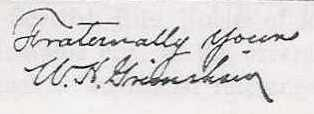 Fraternally Yours
W. H. Grimshaw